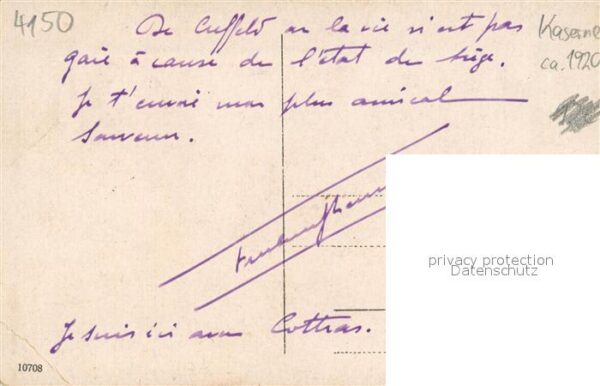 4150
De Creffeld où la vie n'est pas
gaie à cause de l'état de siège.
Je t'envoi mon plus amical
Souvenir.
Kaserne
ca. 1920
privacy protection
Datenschutz
Je suis ici avec Cottras.
10708